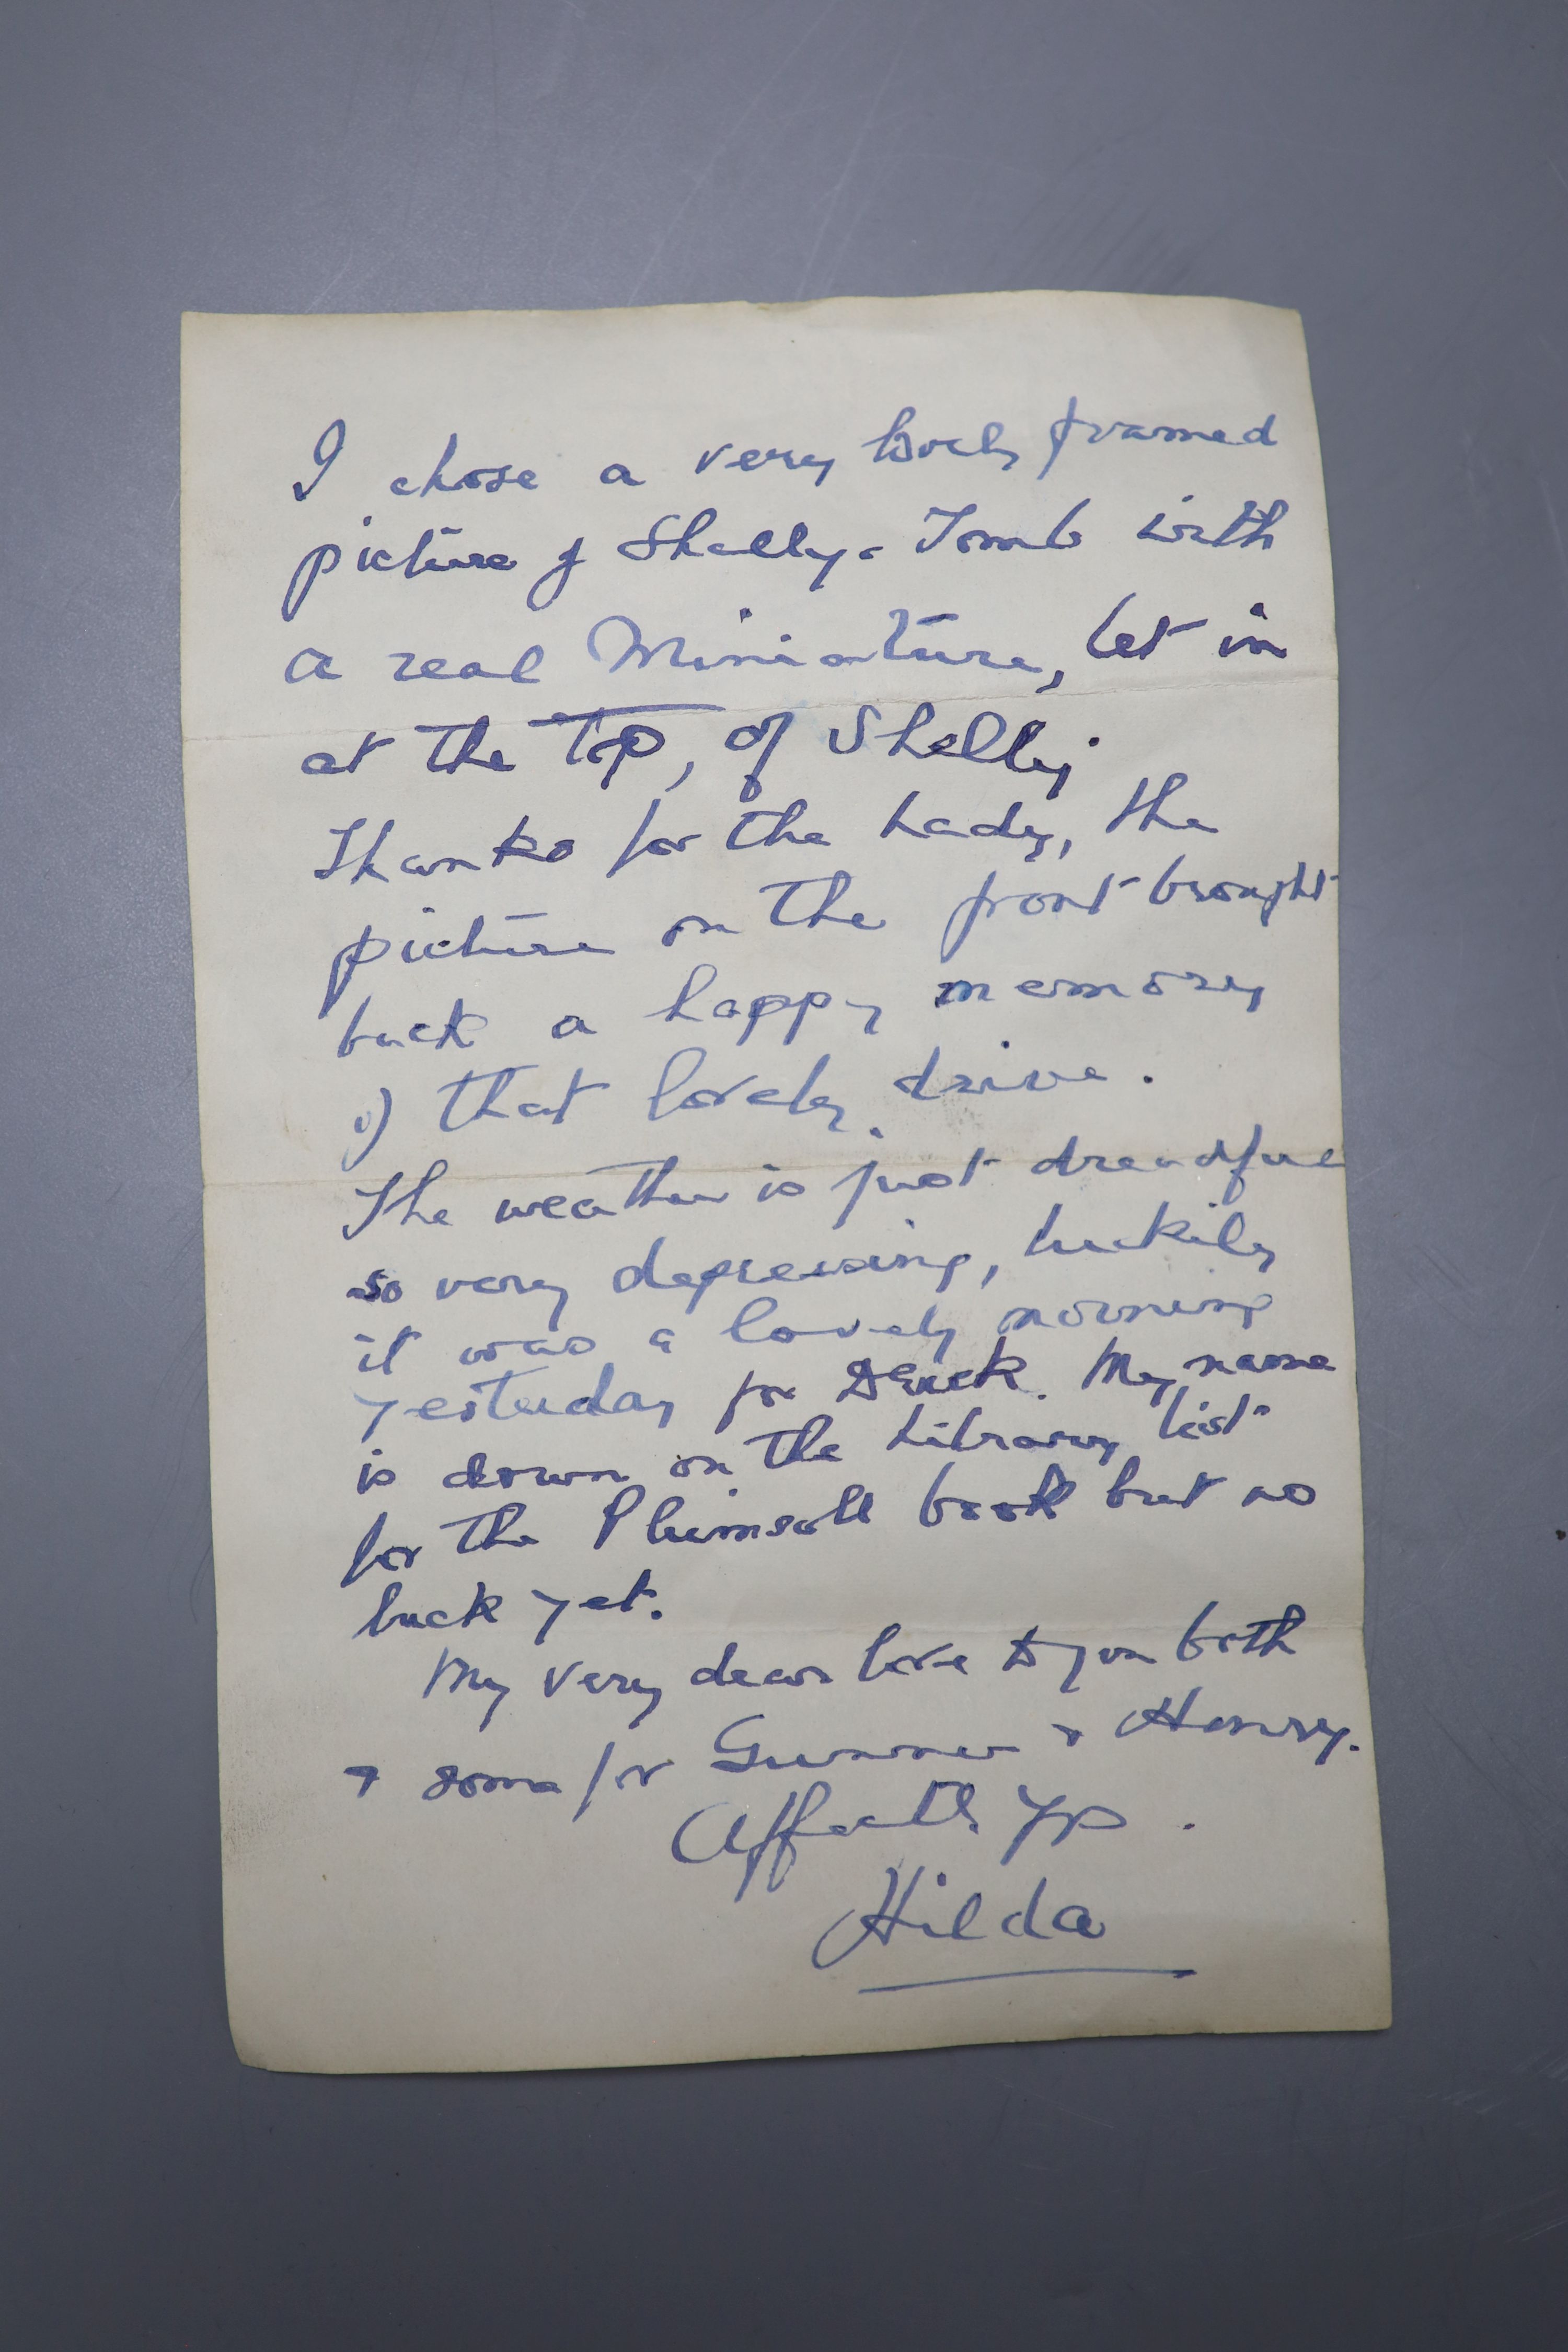 I chose a very lovely framed
picture of Shelly's Tomb with
a real Miniature, let in
at the Top, of Shelly.
Thanks for the Lady, the
picture on the front brought
back a happy memory
of that lovely drive.
The weather is just dreadful
so very depressing, luckily
it was a lovely morning
yesterday for Derick. My name
is down on the Library list
for the Plimsoll book but no
luck yet.
My very dear love to you both
& some for Gunner & Henry.
Affectly Yrs.
Hilda